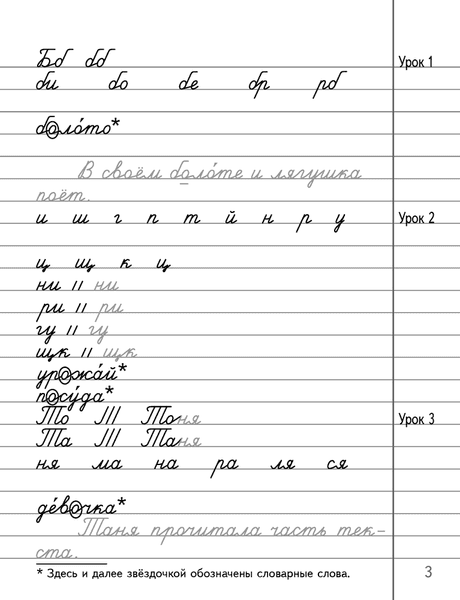 Бб бб Урок 1
би бо бе бр рб
боло́то*
В своём боло́те и лягушка
поёт.
и ш г п т й н р у Урок 2
ц щ к ц
ни // ни
ри // ри
гу // гу
щк // щк
урожа́й*
посу́да*
То /// Тоня Урок 3
Та /// Таня
ня ма на ра ля ся
де́вочка*
Таня прочитала часть тек-
ста.
* Здесь и далее звёздочкой обозначены словарные слова.
3